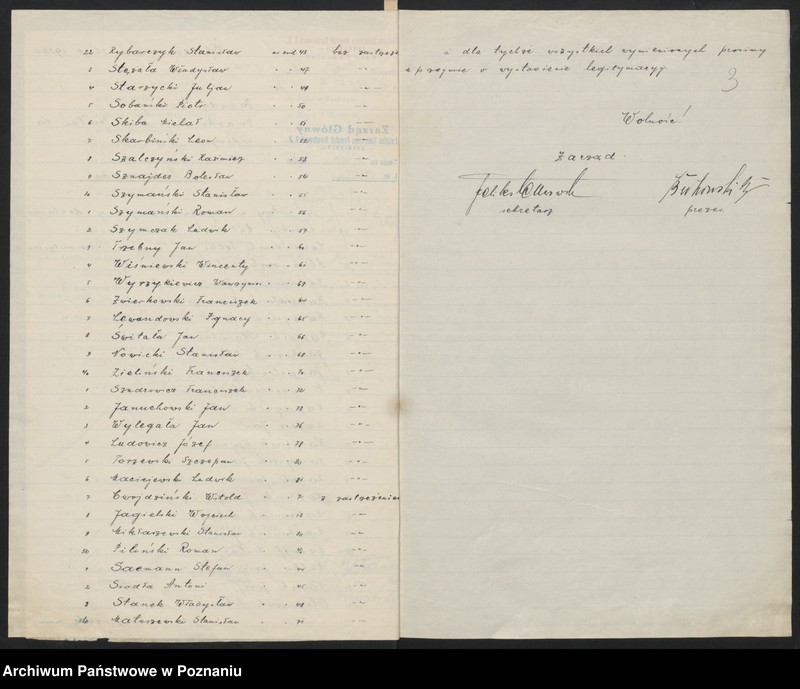 22 Rybarczyk Stanisław 43 bez zastrzeż
3 Stęzała Władysław 47
4 Starzycki Juljan 48
5 Sobański Piotr 50
6 Skiba Michał 51
7 Skarbiński Leon 52
8 Szalczynski Kazimierz 53
9 Sznajder Bolesław 54
30 Szymański Stanisław 55
1 Szymański Roman 56
2 Szymczak Ludwik 57
3 Trzebny Jan 60
4 Wiśniewski Wincenty 61
5 Wyrzykiewicz Wawrzynie 63
6 Zwierkowski Franciszek 64
7 Lewandowski Ignacy 65
8 Świtała Jan 66
9 Nowicki Stanisław 68
40 Zieliński Franciszek 70
1 Franciszek 72
2 Januchowski Jan 73
3 Wylegała Jan 76
4 Ludowicz Józef 78
5 Torzewski Szczepan 80
6 Maciejewski Ludwik 81
7 Cwojdziński Witold 7 z zastrzeżeniem
8 Jagielski Wojciech 18
9 Mikłaszewski Stanisław 20
50 Piloński Roman 42
1 Saemann Stefan 44
2 Srodła Antoni 45
3 Stanek Władysław 48
54 Mataszewski Stanisław 71
dla tychże wszystkich wymienionych prosimy
uprzejmie o wystawienie legitymacyj
3
Wolność!
Zarząd.
sekretarz
prezes
Zarząd Główny
Archiwum Państwowe w Poznaniu